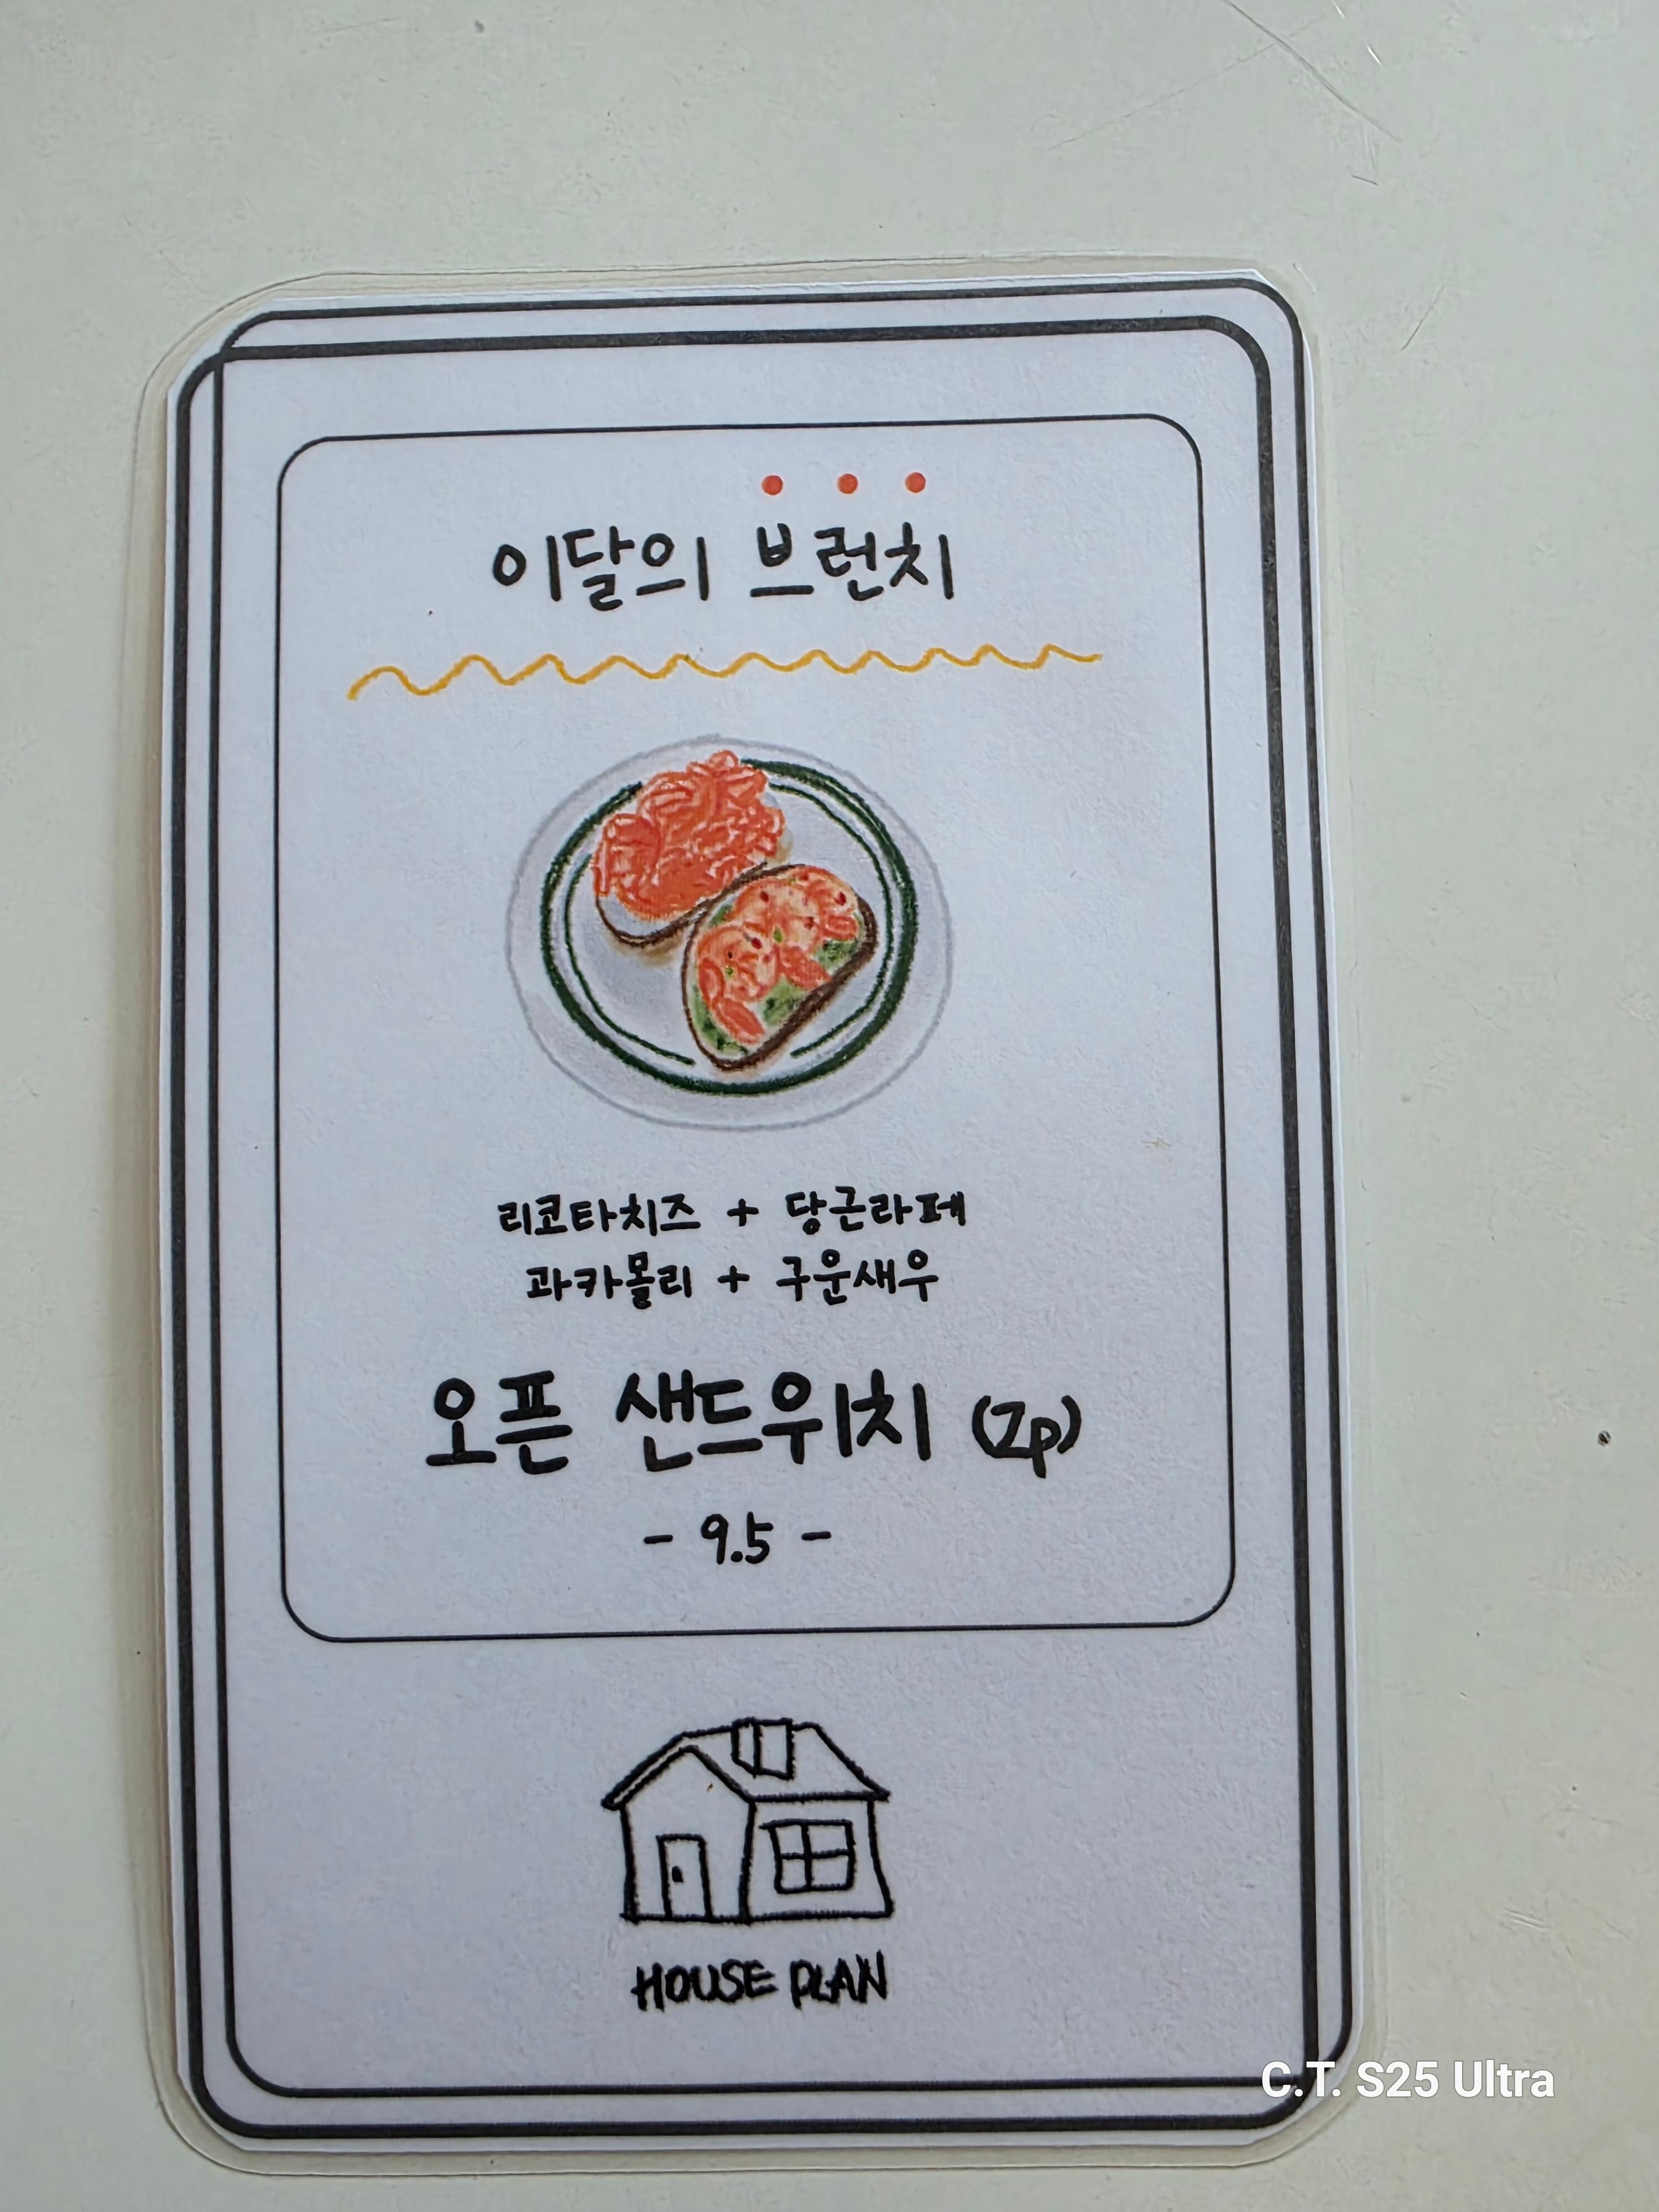 이달의 브런치
리코타치즈 + 당근라페
과카몰리 + 구운새우
오픈 샌드위치 (2p)
- 9.5 -
HOUSE PLAN
C.T. S25 Ultra